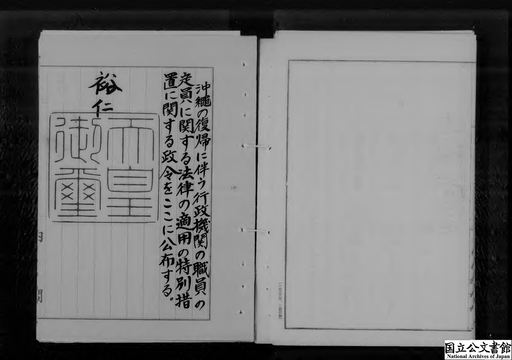 沖縄の復帰に伴う行政機関の職員の
定員に関する法律の適用の特別措
置に関する政令をここに公布する。
裕仁
天皇
御璽
国立公文書館
National Archives of Japan